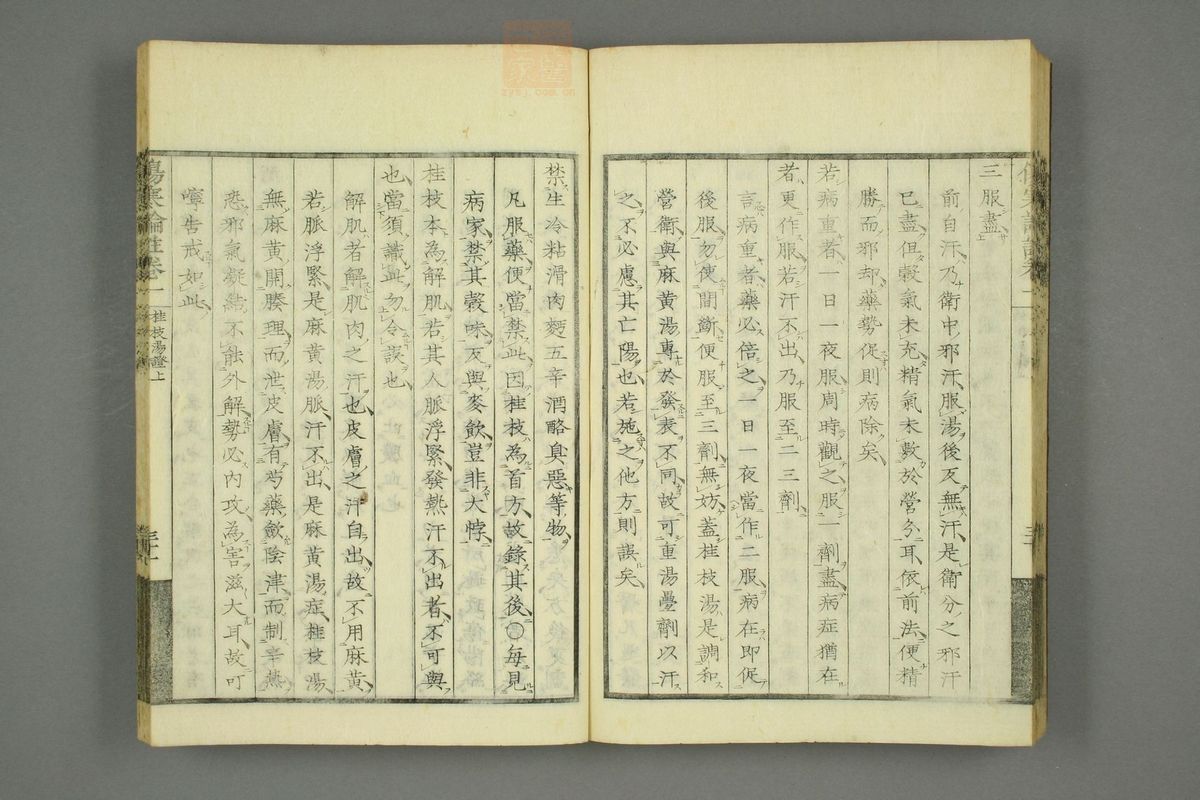 三服盡
前自汗乃衛中邪汗服湯後反無汗是衛分之邪汗
已盡但穀氣未充精氣未敷於營分耳依前法便精
勝而邪却藥勢促則病除矣
若病重者一日一夜服周時觀之服一劑盡病症猶在
者更作服若汗不出乃服至二三劑
言病重者藥必倍之一日一夜當作二服病在即促
後服勿使間斷便服至三劑無妨蓋桂枝湯是調和
營衛與麻黄湯專於發表不同故可重湯疊劑以汗
之不必慮其亡陽也若施之他方則誤矣
禁生冷粘滑肉麪五辛酒酪臭惡等物
凡服藥便當禁此因桂枝為首方故錄其後〇每見
病家禁其穀味反與麥飲豈非大悖
桂枝本為解肌若其人脈浮緊發熱汗不出者不可與
也當須識此勿令誤也
解肌者解肌肉之汗也皮膚之汗自出故不用麻黄
若脈浮緊是麻黄湯脈汗不出是麻黄湯症桂枝湯
無麻黄開腠理而泄皮膚有芍藥斂陰津而制辛熱
恐邪氣凝結不能外解勢必內攻為害滋大耳故叮
嚀告戒如此
傷寒論註卷一
桂枝湯證上